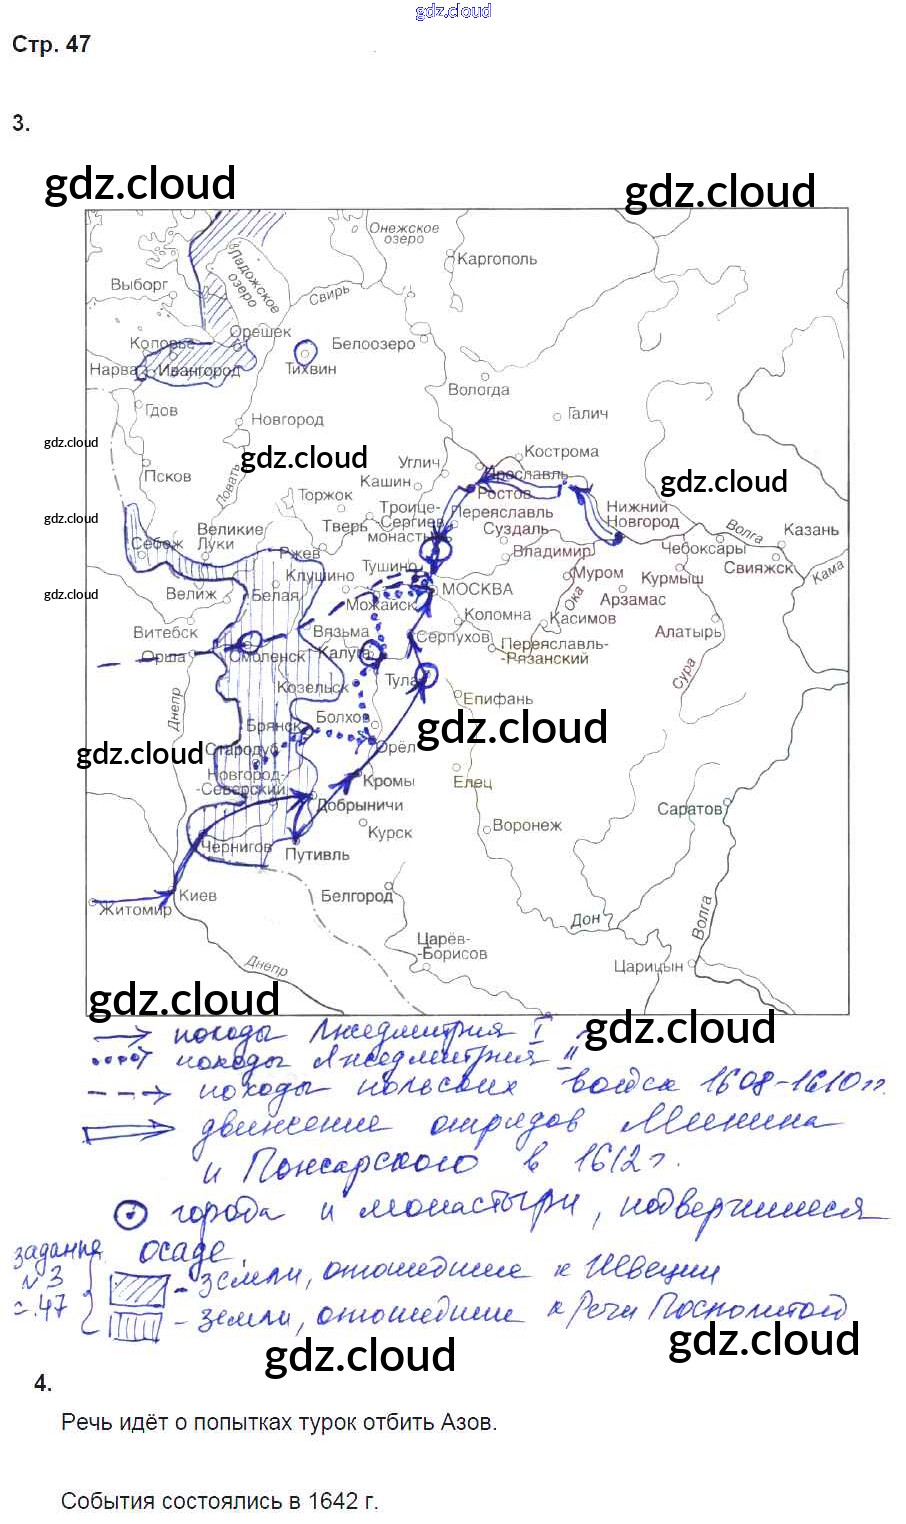 gdz.cloud
Стр. 47
3.
gdz.cloud
gdz.cloud
Онежское
озеро
Каргополь
Ладожское
озеро
Выборг
Свирь
Орешек
Копорье
Белоозеро
Нарва
Ивангород
Тихвин
Вологда
Гдов
Новгород
Галич
gdz.cloud
gdz.cloud
Углич
Кострома
Псков
Ловать
Кашин
Ярославль
gdz.cloud
Ростов
Торжок
Троице-
-Сергиев
монастырь
Переяславль
Нижний
Новгород
gdz.cloud
Великие
Луки
Тверь
Суздаль
Волга
Казань
Себеж
Ржев
Владимир
Чебоксары
Свияжск
Кама
gdz.cloud
Клушино
Тушино
Муром
Курмыш
Велиж
Белая
Можайск
МОСКВА
Ока
Арзамас
Витебск
Вязьма
Коломна
Касимов
Алатырь
Орша
Смоленск
Калуга
Серпухов
Переяславль-
-Рязанский
Сура
Днепр
Козельск
Тула
Епифань
Брянск
Болхов
gdz.cloud
gdz.cloud
Стародуб
Орёл
Новгород-
-Северский
Кромы
Елец
Добрыничи
Саратов
Чернигов
Путивль
Курск
Воронеж
Житомир
Киев
Белгород
Дон
Волга
Днепр
Царёв-
-Борисов
Царицын
gdz.cloud
gdz.cloud
походы Лжедмитрия I
походы Лжедмитрия II
походы польских войск 1608-1610 гг.
движение отрядов Минина
и Пожарского в 1612 г.
города и монастыри, подвергшиеся
осаде
задание
№ 3
с. 47
- земли, отошедшие к Швеции
- земли, отошедшие к Речи Посполитой
gdz.cloud
gdz.cloud
4.
Речь идёт о попытках турок отбить Азов.
События состоялись в 1642 г.